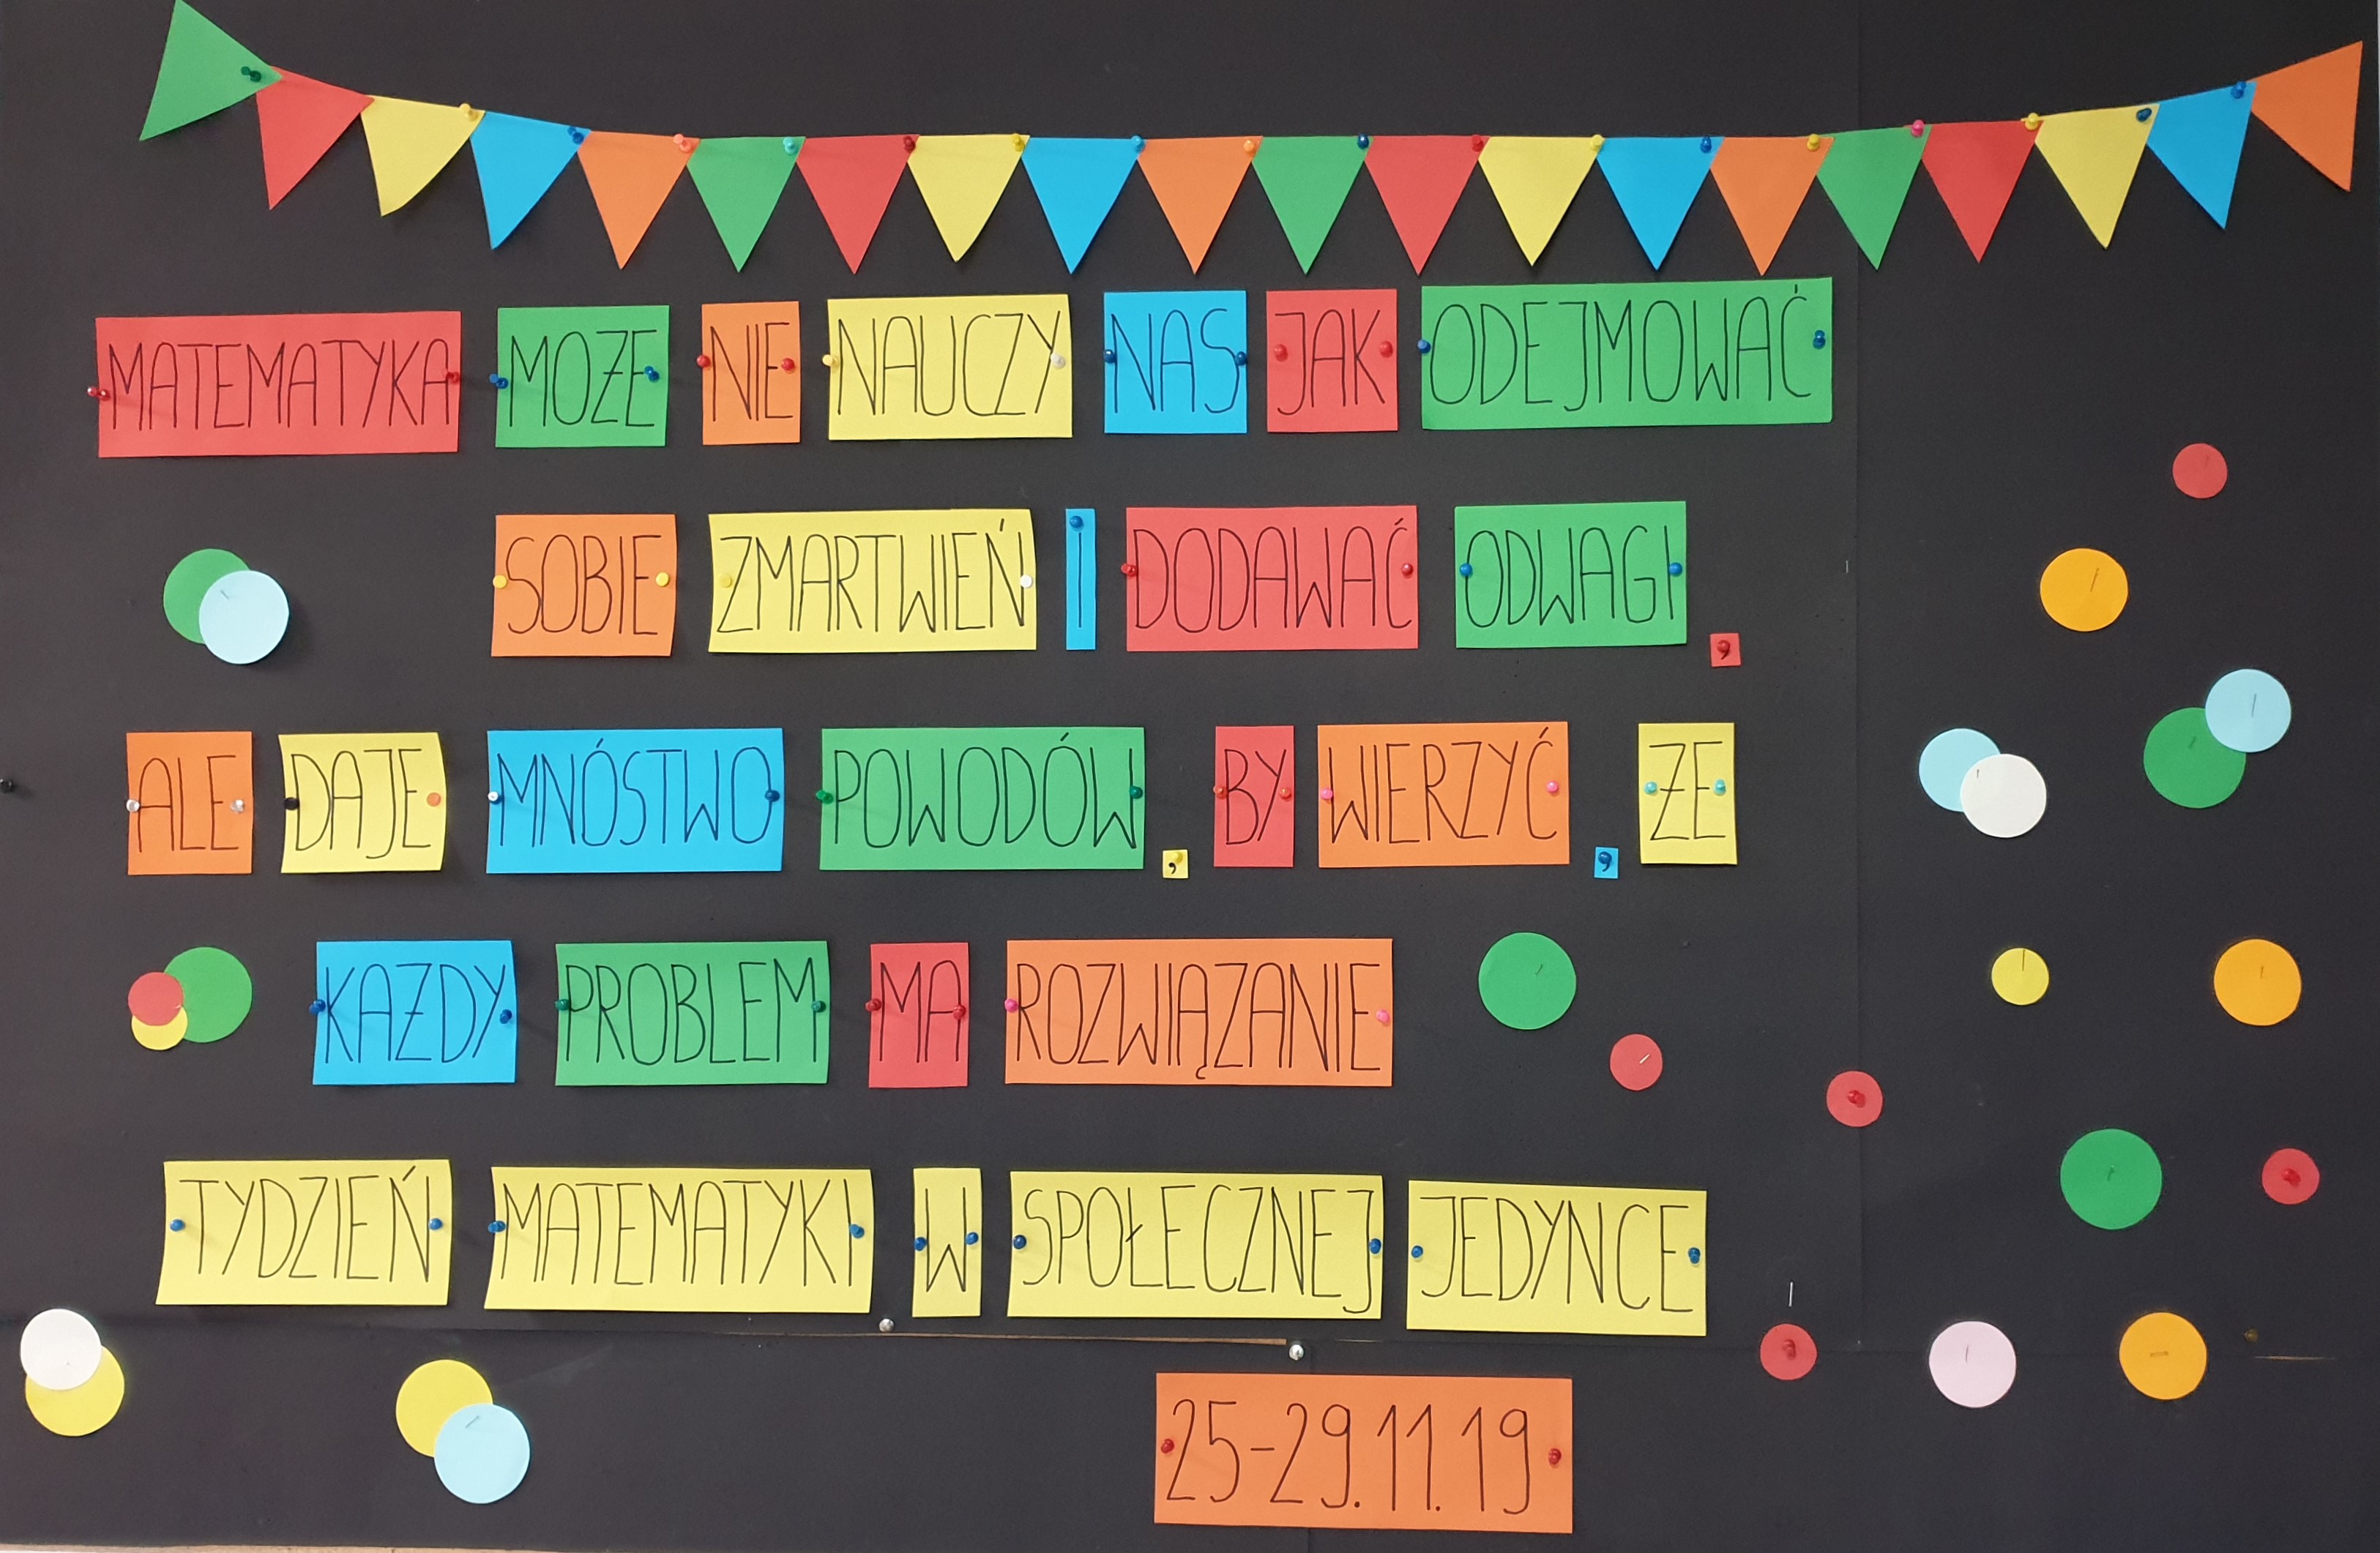 MATEMATYKA MOŻE NIE NAUCZY NAS JAK ODEJMOWAĆ
SOBIE ZMARTWIEŃ I DODAWAĆ ODWAGI,
ALE DAJE MNÓSTWO POWODÓW, BY WIERZYĆ, ŻE
KAŻDY PROBLEM MA ROZWIĄZANIE
TYDZIEŃ MATEMATYKI W SPOŁECZNEJ JEDYNCE
25-29.11.19